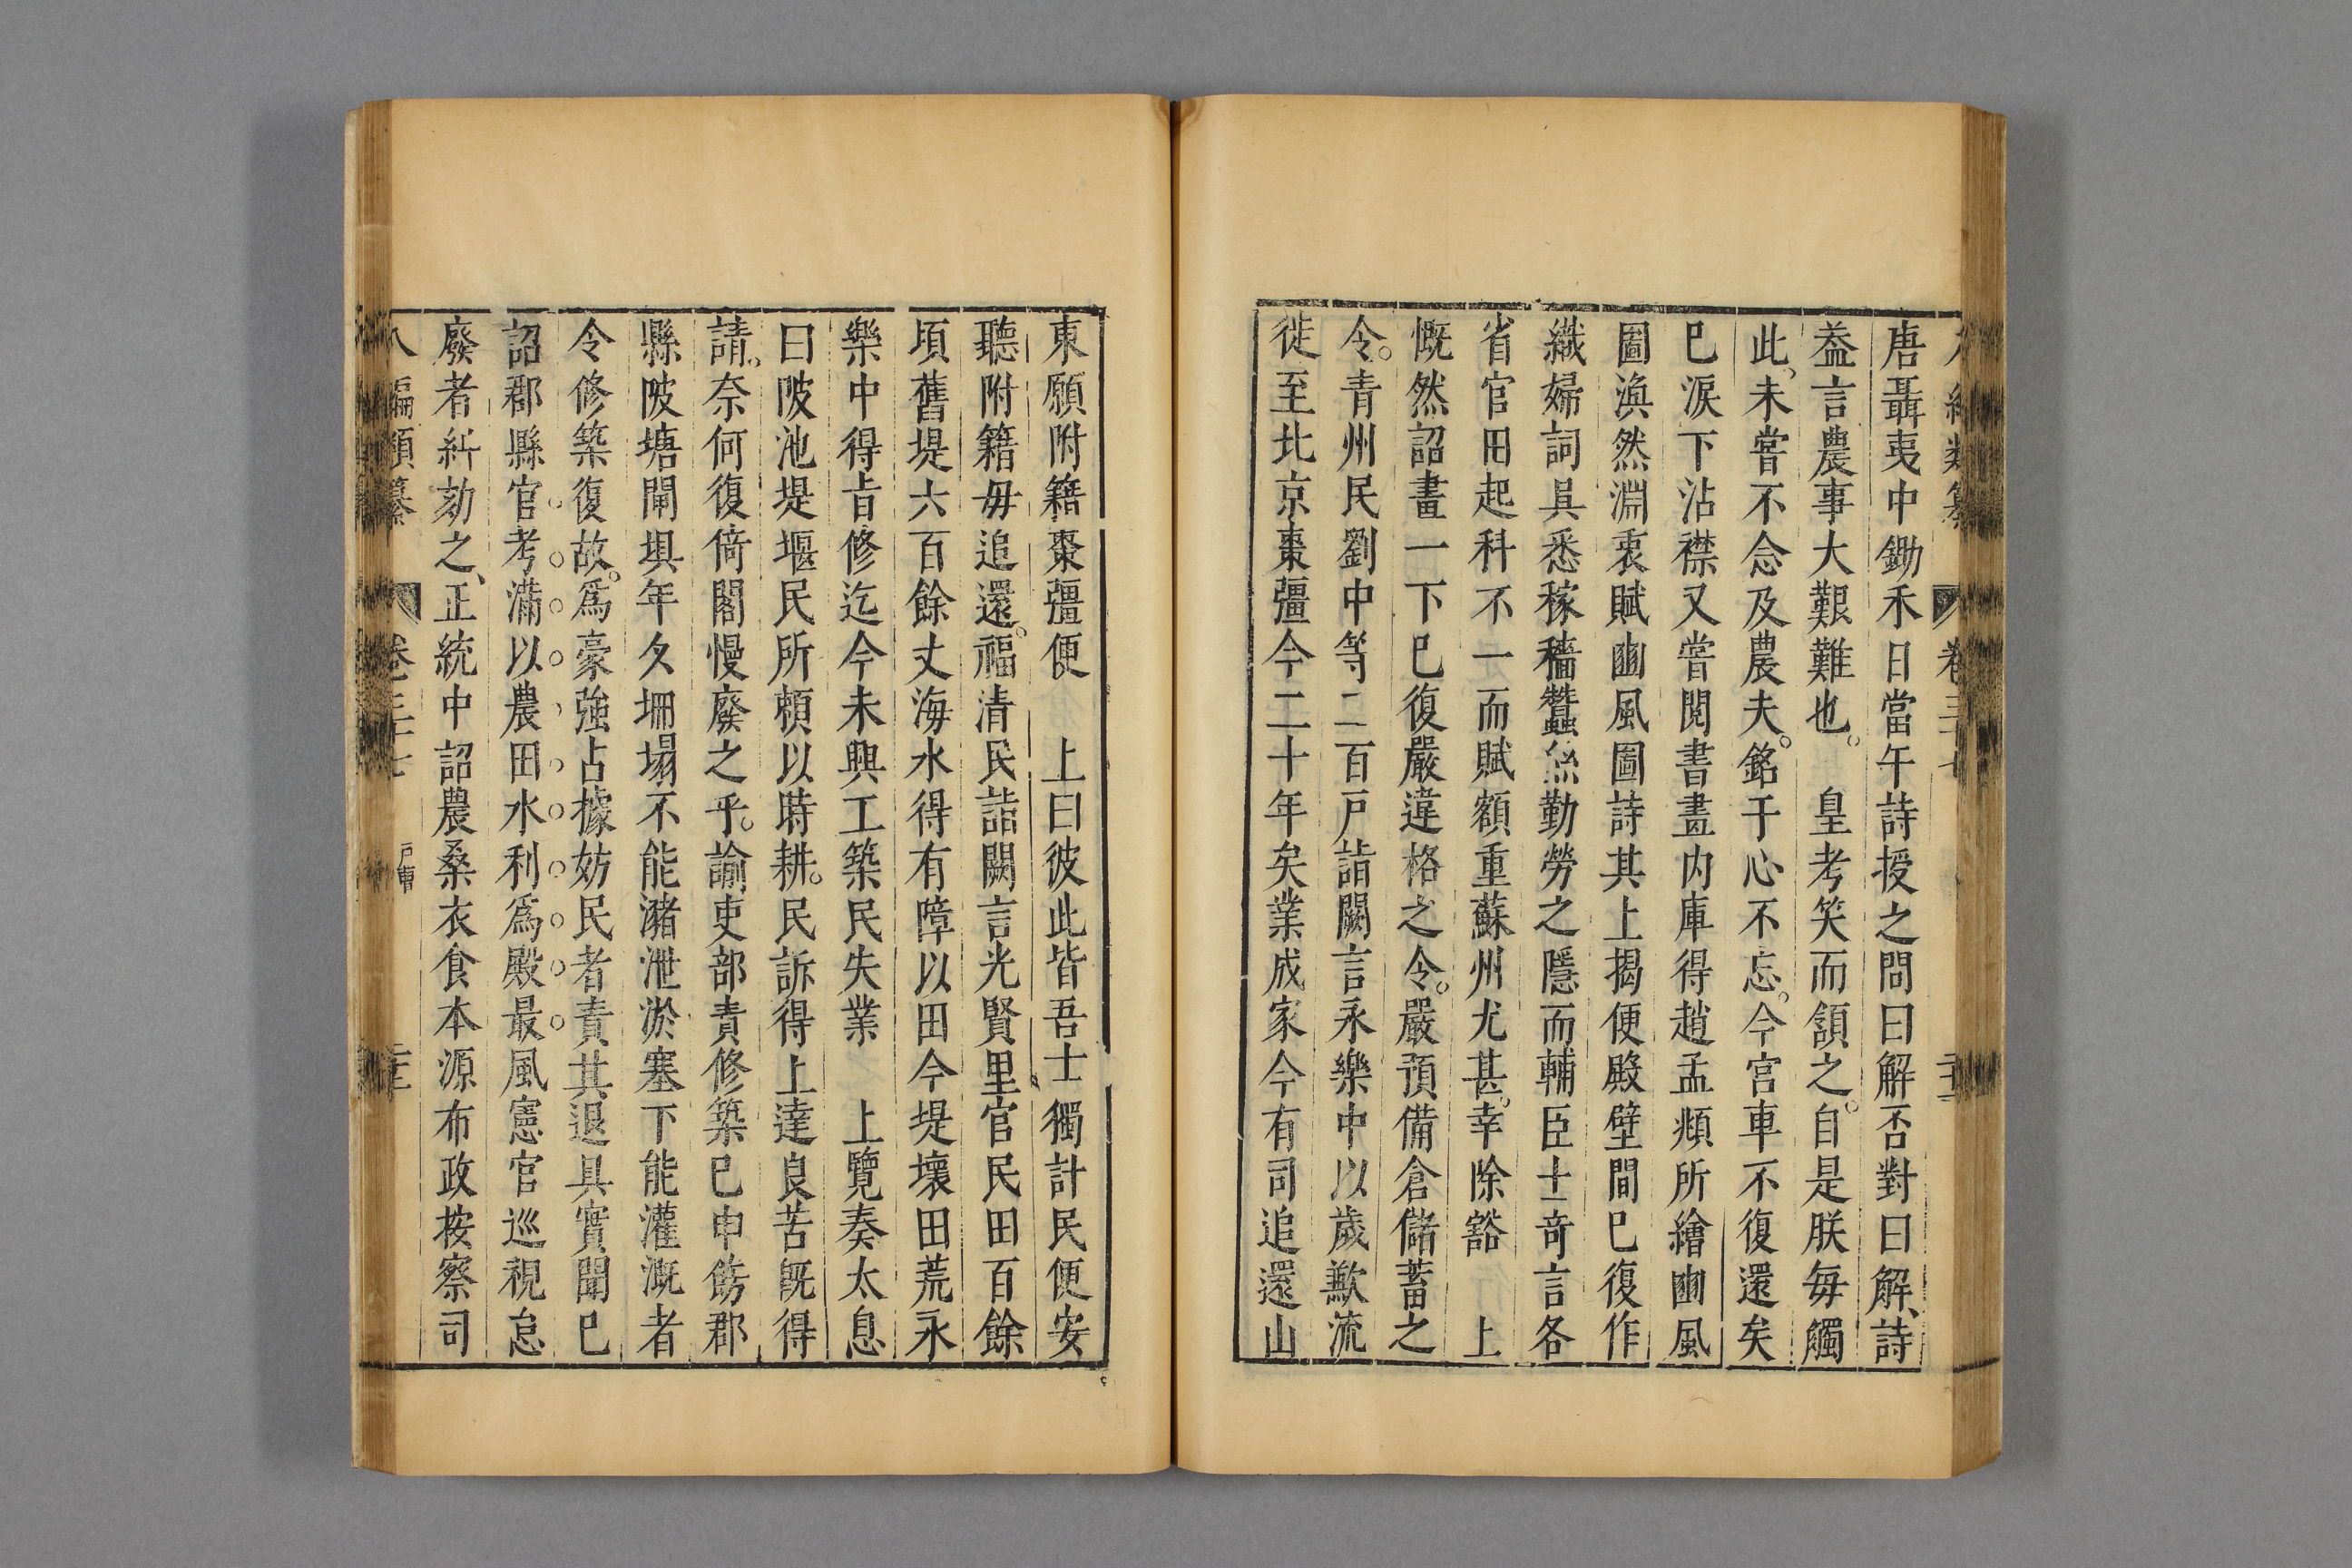 唐聶夷中鋤禾日當午詩授之問曰解否對曰解、詩
葢言農事大艱難也。　皇考笑而頷之。自是朕每觸
此、未嘗不念及農夫。銘于心不忘。今宮車不復還矣
巳淚下沾襟又嘗閱書畫内庫得趙孟頫所繪豳風
圖渙然淵衷賦豳風圖詩其上揭便殿壁間巳復作
織婦詞具悉稼穡蠶絲勤勞之隱而輔臣士奇言各
省官田起科不一而賦額重蘇州尤甚。幸除豁　　上
慨然詔書一下巳復嚴違格之令。嚴預備倉儲蓄之
令。青州民劉中等二百戸詣闕言永樂中以歲歉流
徙至北京棗彊今二十年矣業成家今有司追還山
東願附籍棗彊便　上曰彼此皆吾士、獨計民便安
聽附籍毋追還。福清民詣闕言光賢里官民田百餘
頃舊堤六百餘丈海水得有障以田今堤壞田荒永
樂中得旨修迄今未興工築民失業　上覽奏太息
曰陂池堤堰民所頼以時耕。民訴得上達良苦旣得
請。奈何復倚閣慢廢之乎。諭吏部責修築巳申飭郡
縣陂塘閘垻年久坍塌不能瀦泄淤塞下能灌溉者
令修築復故。爲豪強占據妨民者責其退具實聞巳
詔郡縣官考滿以農田水利爲殿最風憲官巡視怠
廢者糾劾之、正統中詔農桑衣食本源布政按察司
八編類纂　卷三十七　二十三